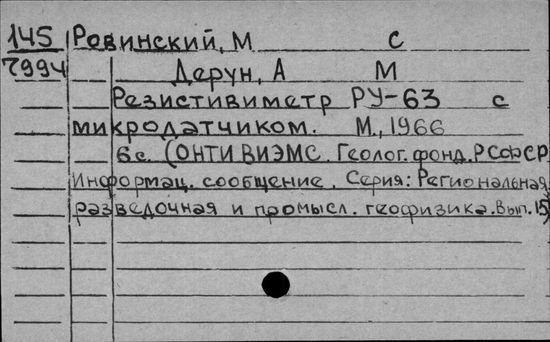 145 Ровинский, М С
7994 Дерун, А М
Резистивиметр РУ-63 с
микродатчиком. М., 1966
6 с. (ОНТИ ВИЭМС. Геолог. фонд. РСФСР
Информац. сообщение. Серия: Региональная,
разведочная и промысл. геофизика. Вып. 15)